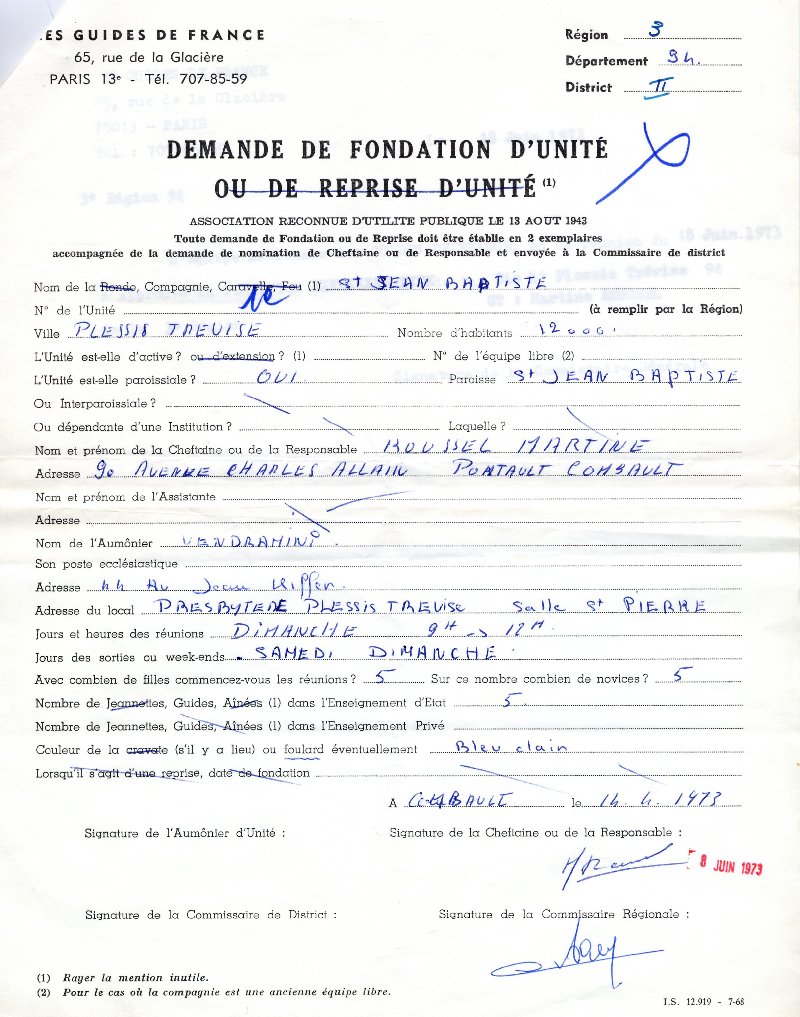 LES GUIDES DE FRANCE
65, rue de la Glacière
PARIS 13e - Tél. 707-85-59
Région 3
Département 94.
District II
DEMANDE DE FONDATION D'UNITÉ
OU DE REPRISE D'UNITÉ (1)
ASSOCIATION RECONNUE D'UTILITE PUBLIQUE LE 13 AOUT 1943
Toute demande de Fondation ou de Reprise doit être établie en 2 exemplaires
accompagnée de la demande de nomination de Cheftaine ou de Responsable et envoyée à la Commissaire de district
Nom de la Ronde, Compagnie, Caravelle, Feu (1) St JEAN BAPTISTE
N° de l'Unité 1e (à remplir par la Région)
Ville PLESSIS TREVISE Nombre d'habitants 12000.
L'Unité est-elle d'active ? ou d'extension ? (1) N° de l'équipe libre (2)
L'Unité est-elle paroissiale ? OUI Paroisse St JEAN BAPTISTE
Ou Interparoissiale ?
Ou dépendante d'une Institution ? Laquelle ?
Nom et prénom de la Cheftaine ou de la Responsable ROUSSEL MARTINE
Adresse 90 AVENUE CHARLES ALLAIN PONTAULT COMBAULT
Nom et prénom de l'Assistante
Adresse
Nom de l'Aumônier VENDRAMINI
Son poste ecclésiastique
Adresse 44 Av Jean Kiffer.
Adresse du local PRESBYTERE PLESSIS TREVISE Salle St PIERRE
Jours et heures des réunions DIMANCHE 9H -> 12H
Jours des sorties ou week-ends SAMEDI DIMANCHE
Avec combien de filles commencez-vous les réunions ? 5 Sur ce nombre combien de novices ? 5
Nombre de Jeannettes, Guides, Aînées (1) dans l'Enseignement d'Etat 5.
Nombre de Jeannettes, Guides, Aînées (1) dans l'Enseignement Privé
Couleur de la cravate (s'il y a lieu) ou foulard éventuellement Bleu clair
Lorsqu'il s'agit d'une reprise, date de fondation
A COMBAULT le 14. 4. 1973
Signature de l'Aumônier d'Unité :
Signature de la Cheftaine ou de la Responsable :
8 JUIN 1973
Signature de la Commissaire de District :
Signature de la Commissaire Régionale :
(1) Rayer la mention inutile.
(2) Pour le cas où la compagnie est une ancienne équipe libre.
I.S. 12.919 - 7-68